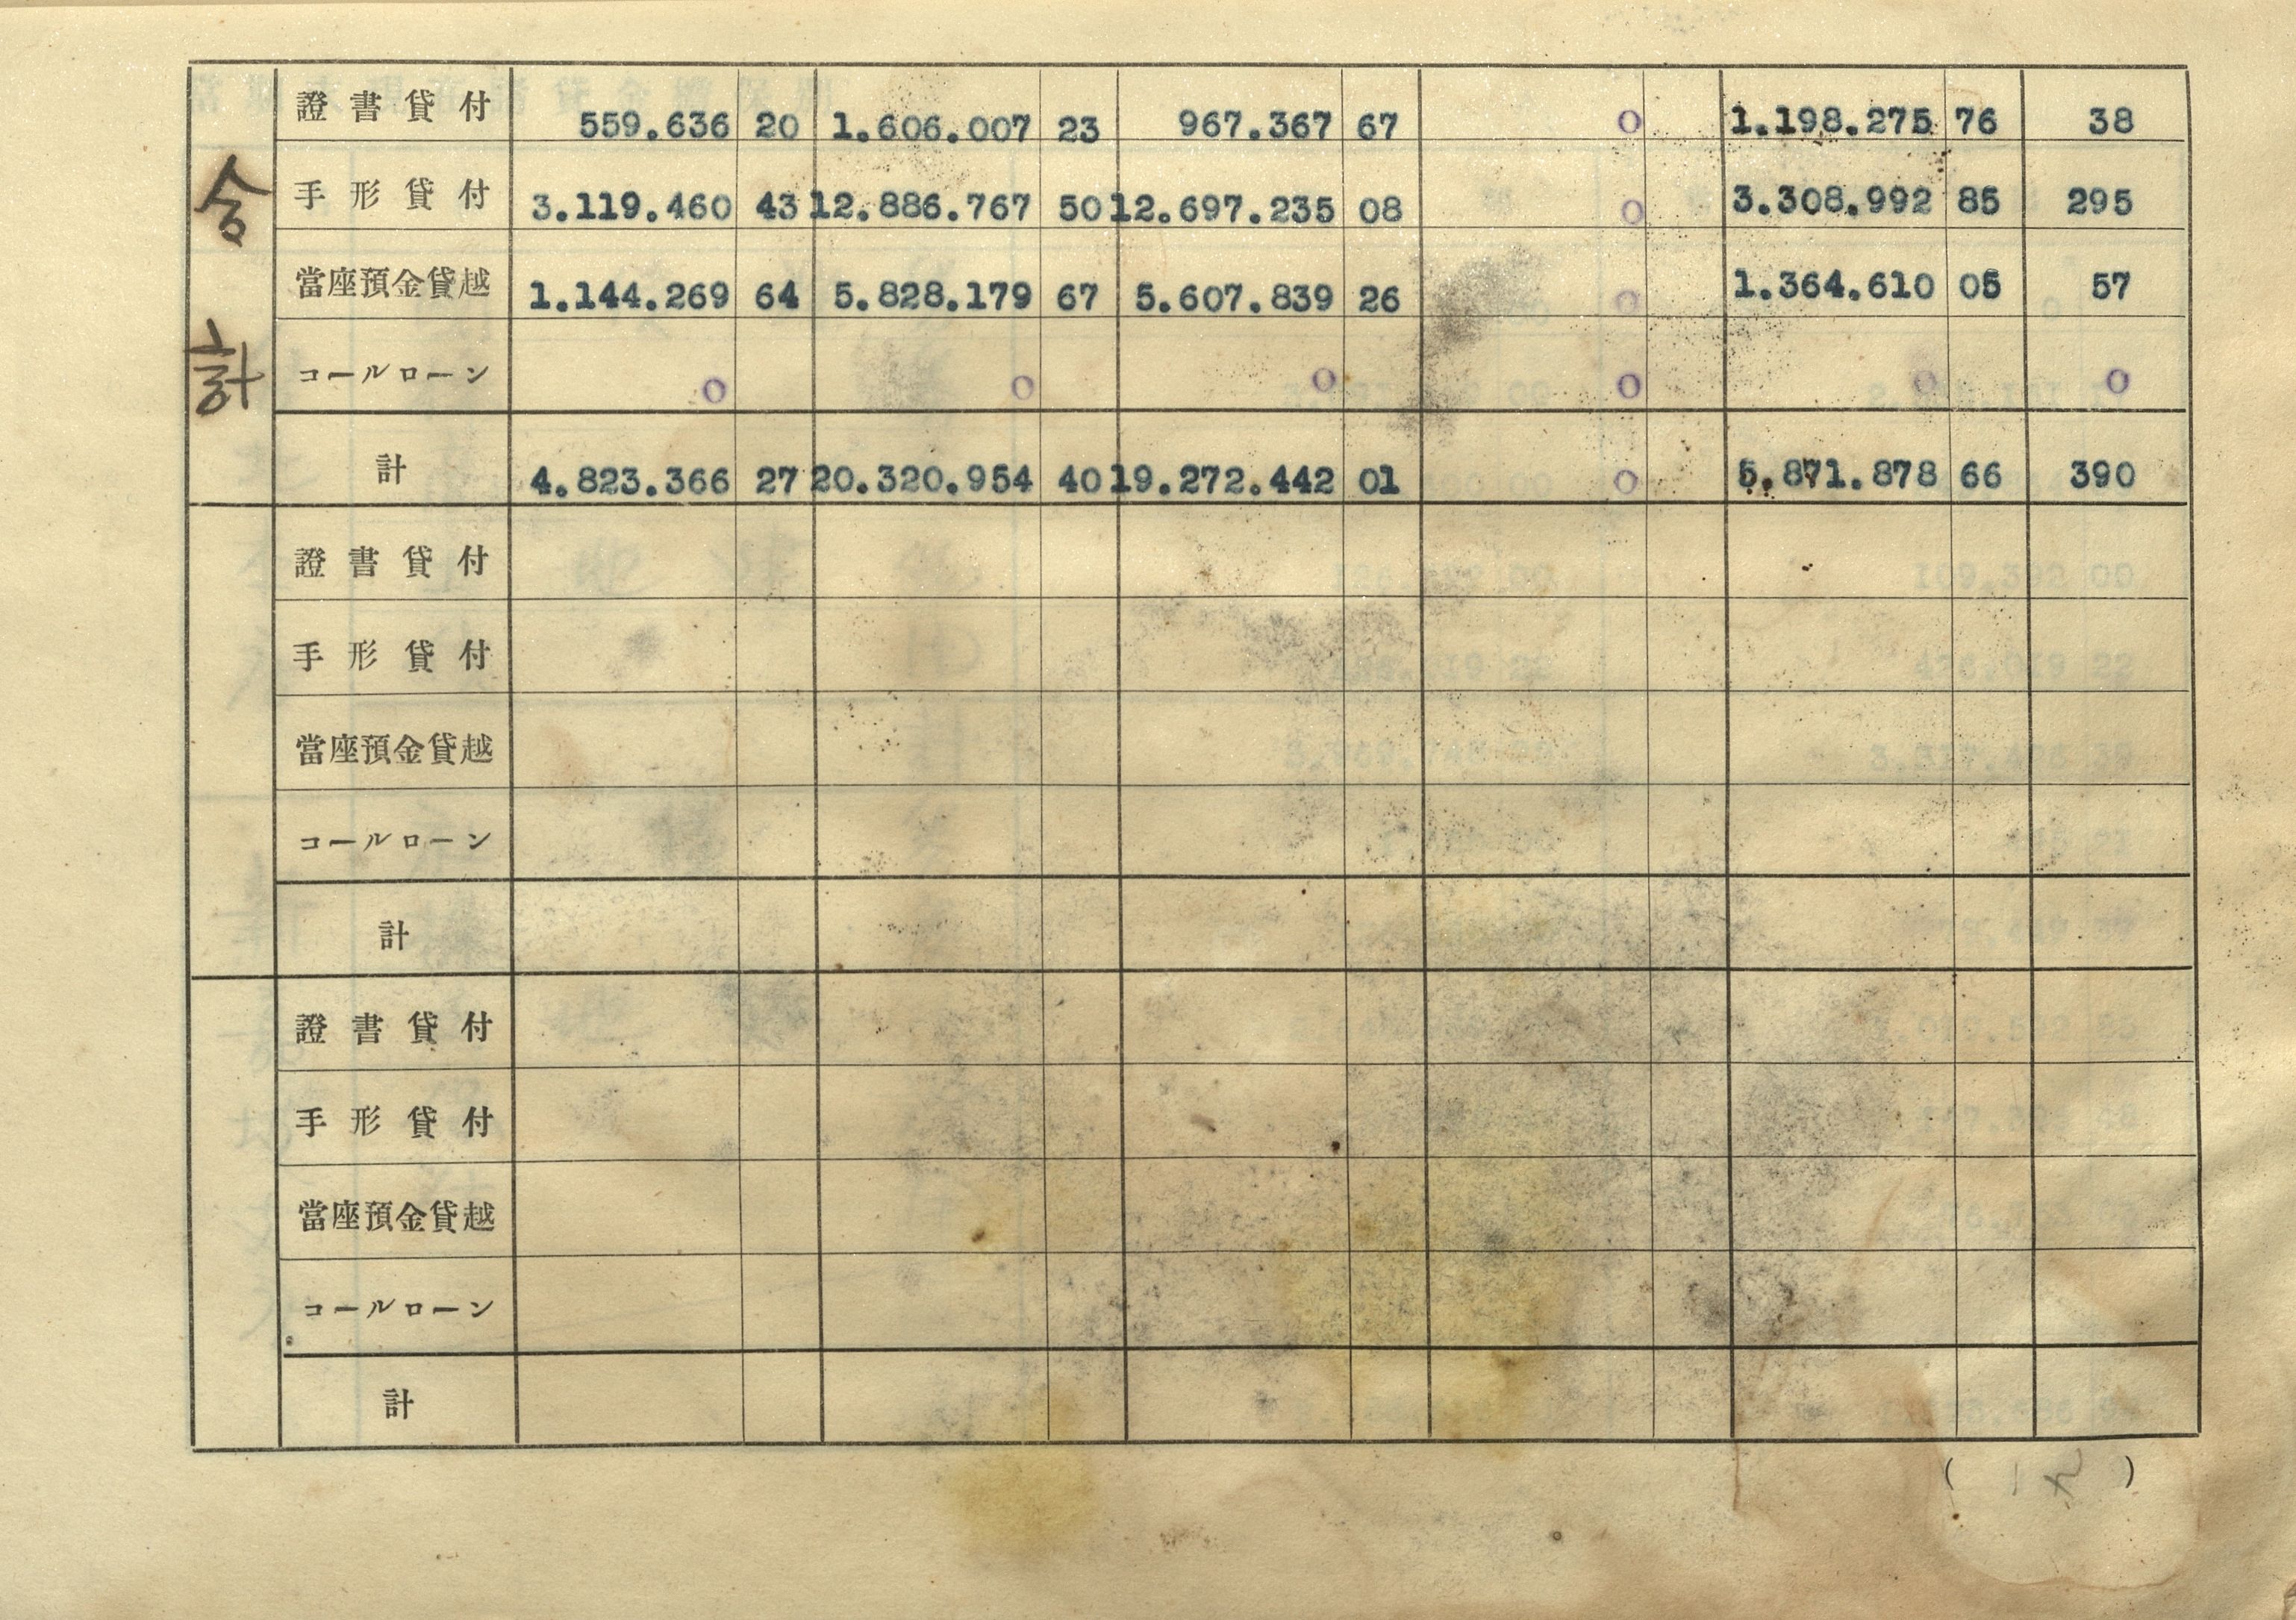 合計
證書貸付 559.636 20 1.606.007 23 967.367 67 0 1.198.275 76 38
手形貸付 3.119.460 43 12.886.767 50 12.697.235 08 0 3.308.992 85 295
當座預金貸越 1.144.269 64 5.828.179 67 5.607.839 26 0 1.364.610 05 57
コールローン 0 0 0 0 0 0
計 4.823.366 27 20.320.954 40 19.272.442 01 0 5.871.878 66 390
證書貸付
手形貸付
當座預金貸越
コールローン
計
證書貸付
手形貸付
當座預金貸越
コールローン
計